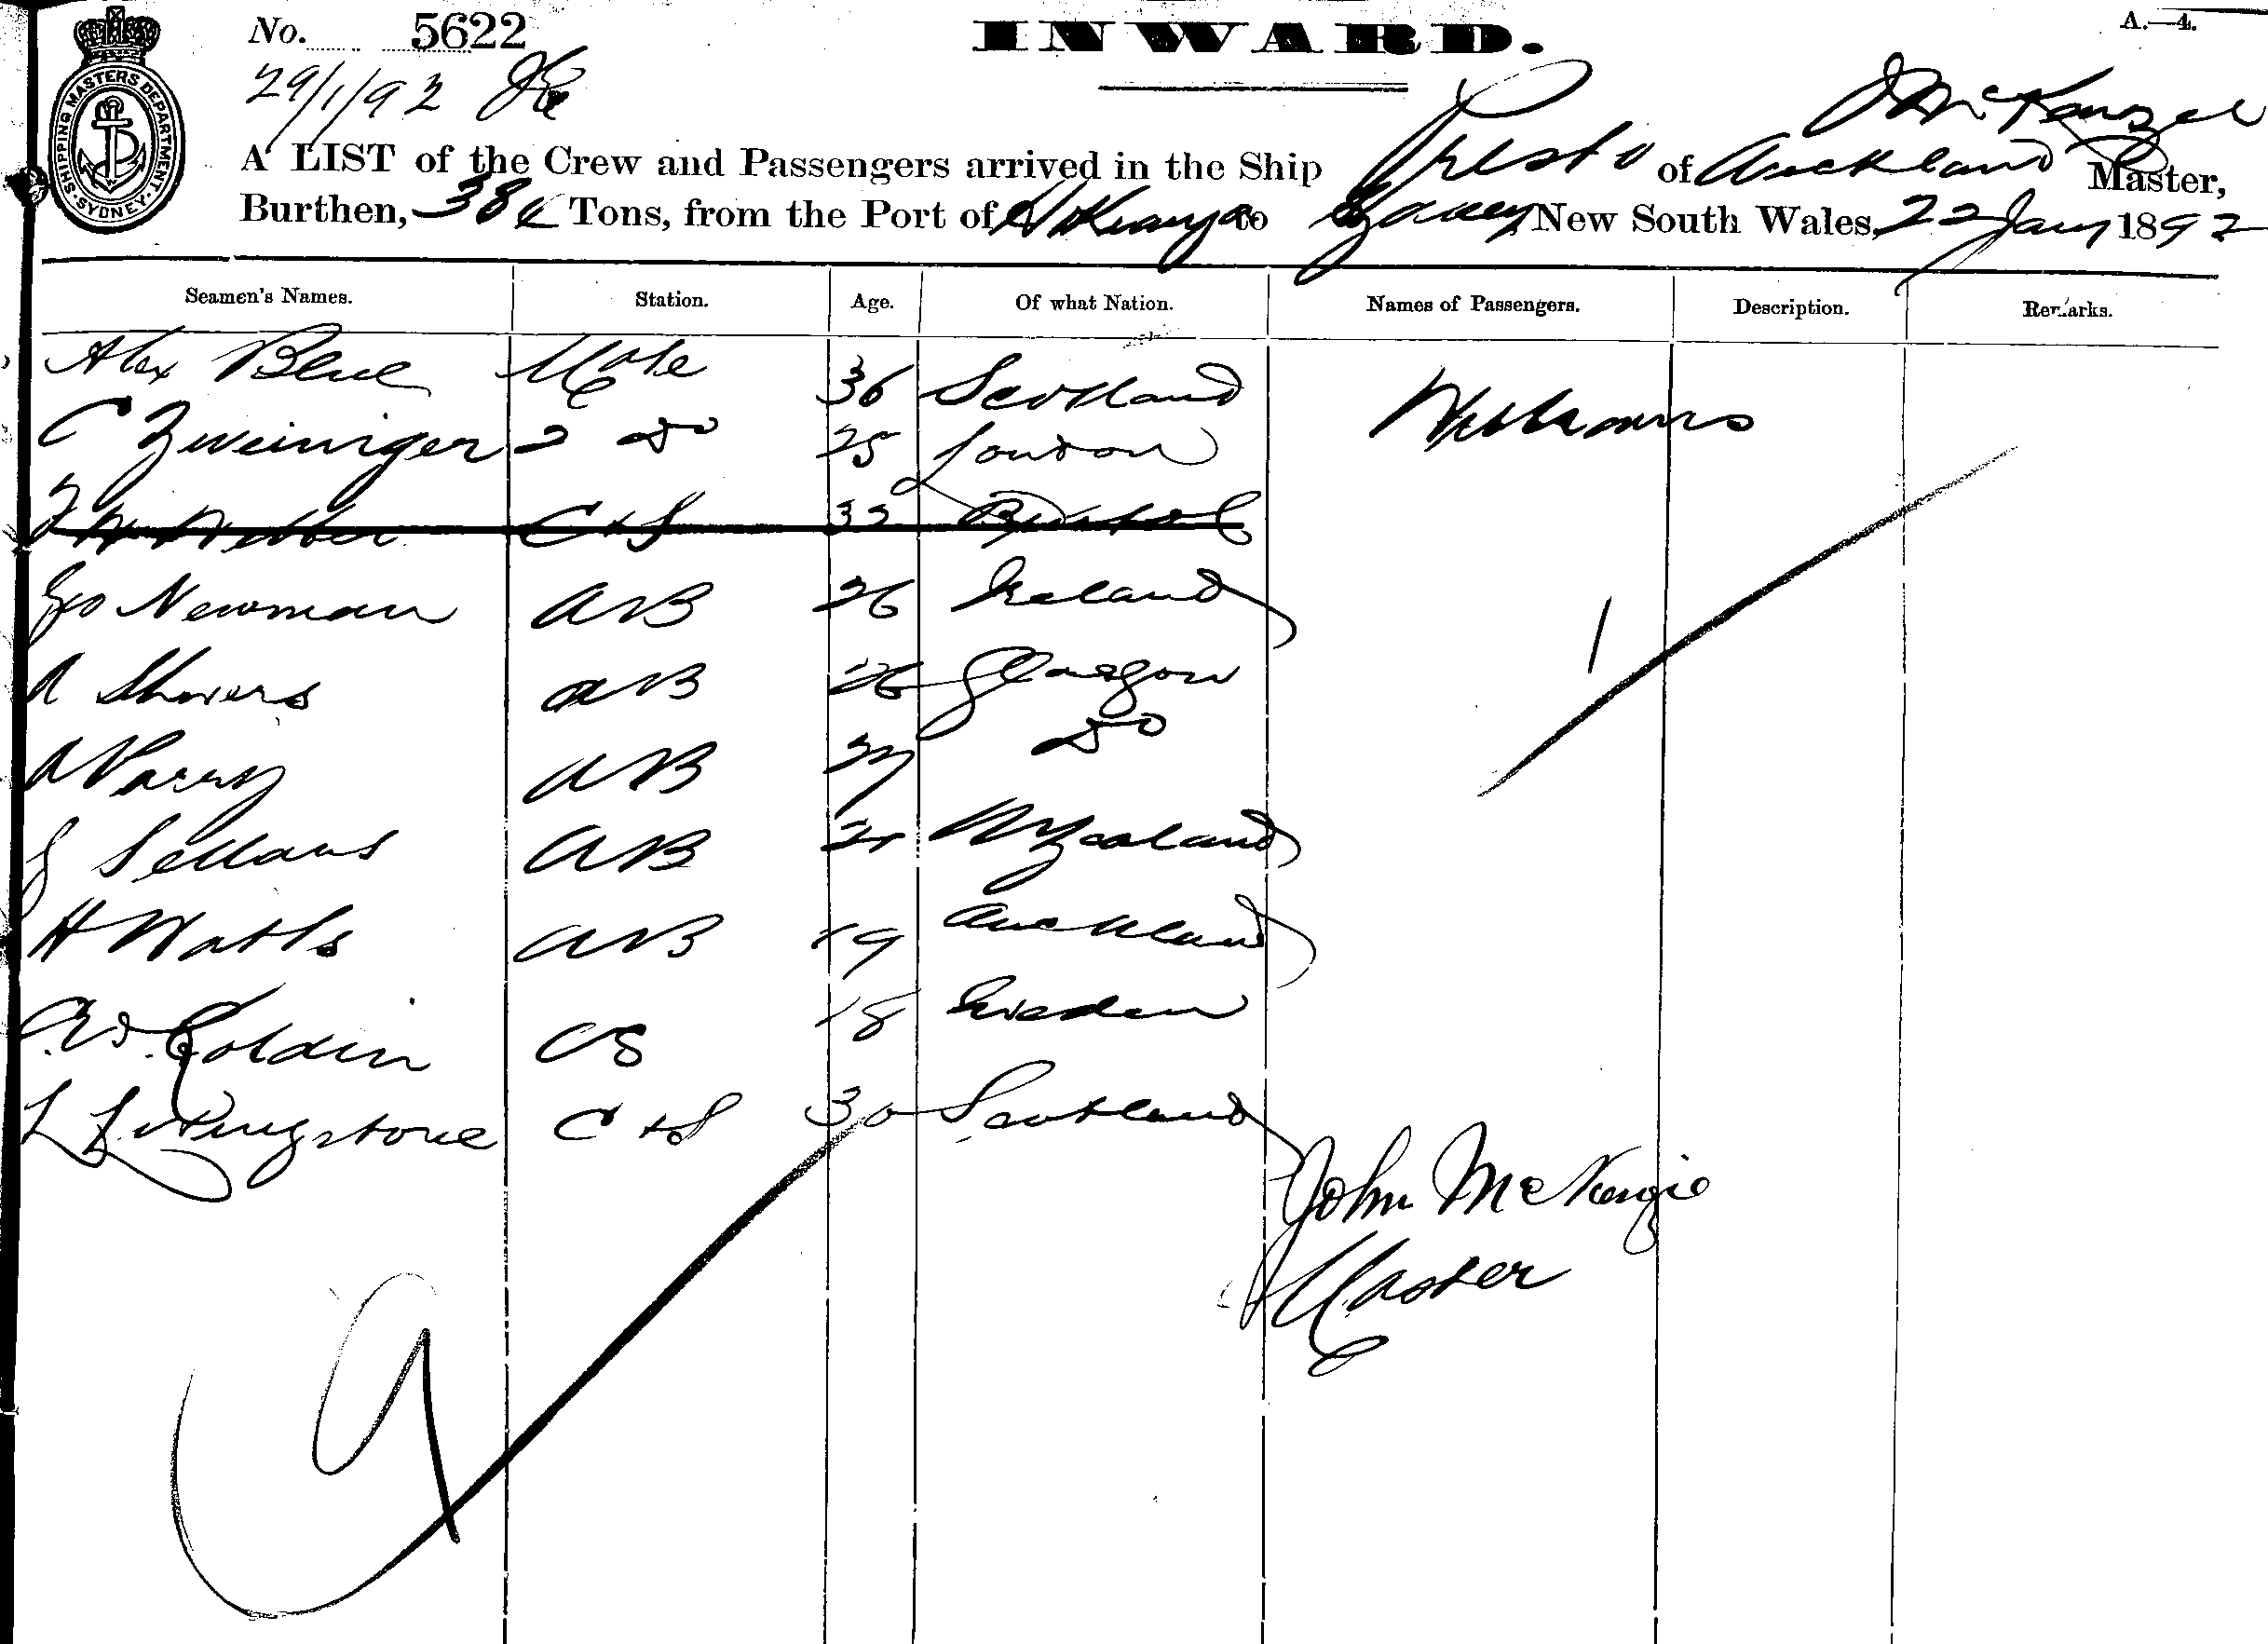 No. 5622
INWARD.
A.—4.
29/1/92
J McKenzie
A LIST of the Crew and Passengers arrived in the Ship Presto of Auckland Master,
Burthen, Tons, from the Port of to Sydney New South Wales, 22 Jany 1892
SHIPPING MASTERS DEPARTMENT · SYDNEY ·
Seamen's Names. Station. Age. Of what Nation. Names of Passengers. Description. Remarks.
Alex Blue Mate 36 Scotland Williams
C Zweiniger 2 Do 25 London
Webber C & S 32 Bristol
Geo Newman AB 26 Ireland 1
A Shivers AB 26 Glasgow
A Parry AB Do
J Sellars AB 21 N Zealand
H Watts AB 19 Auckland
Goldin OS 18 Sweden
L Livingstone C & S 30 Scotland
John McKenzie
Master
9